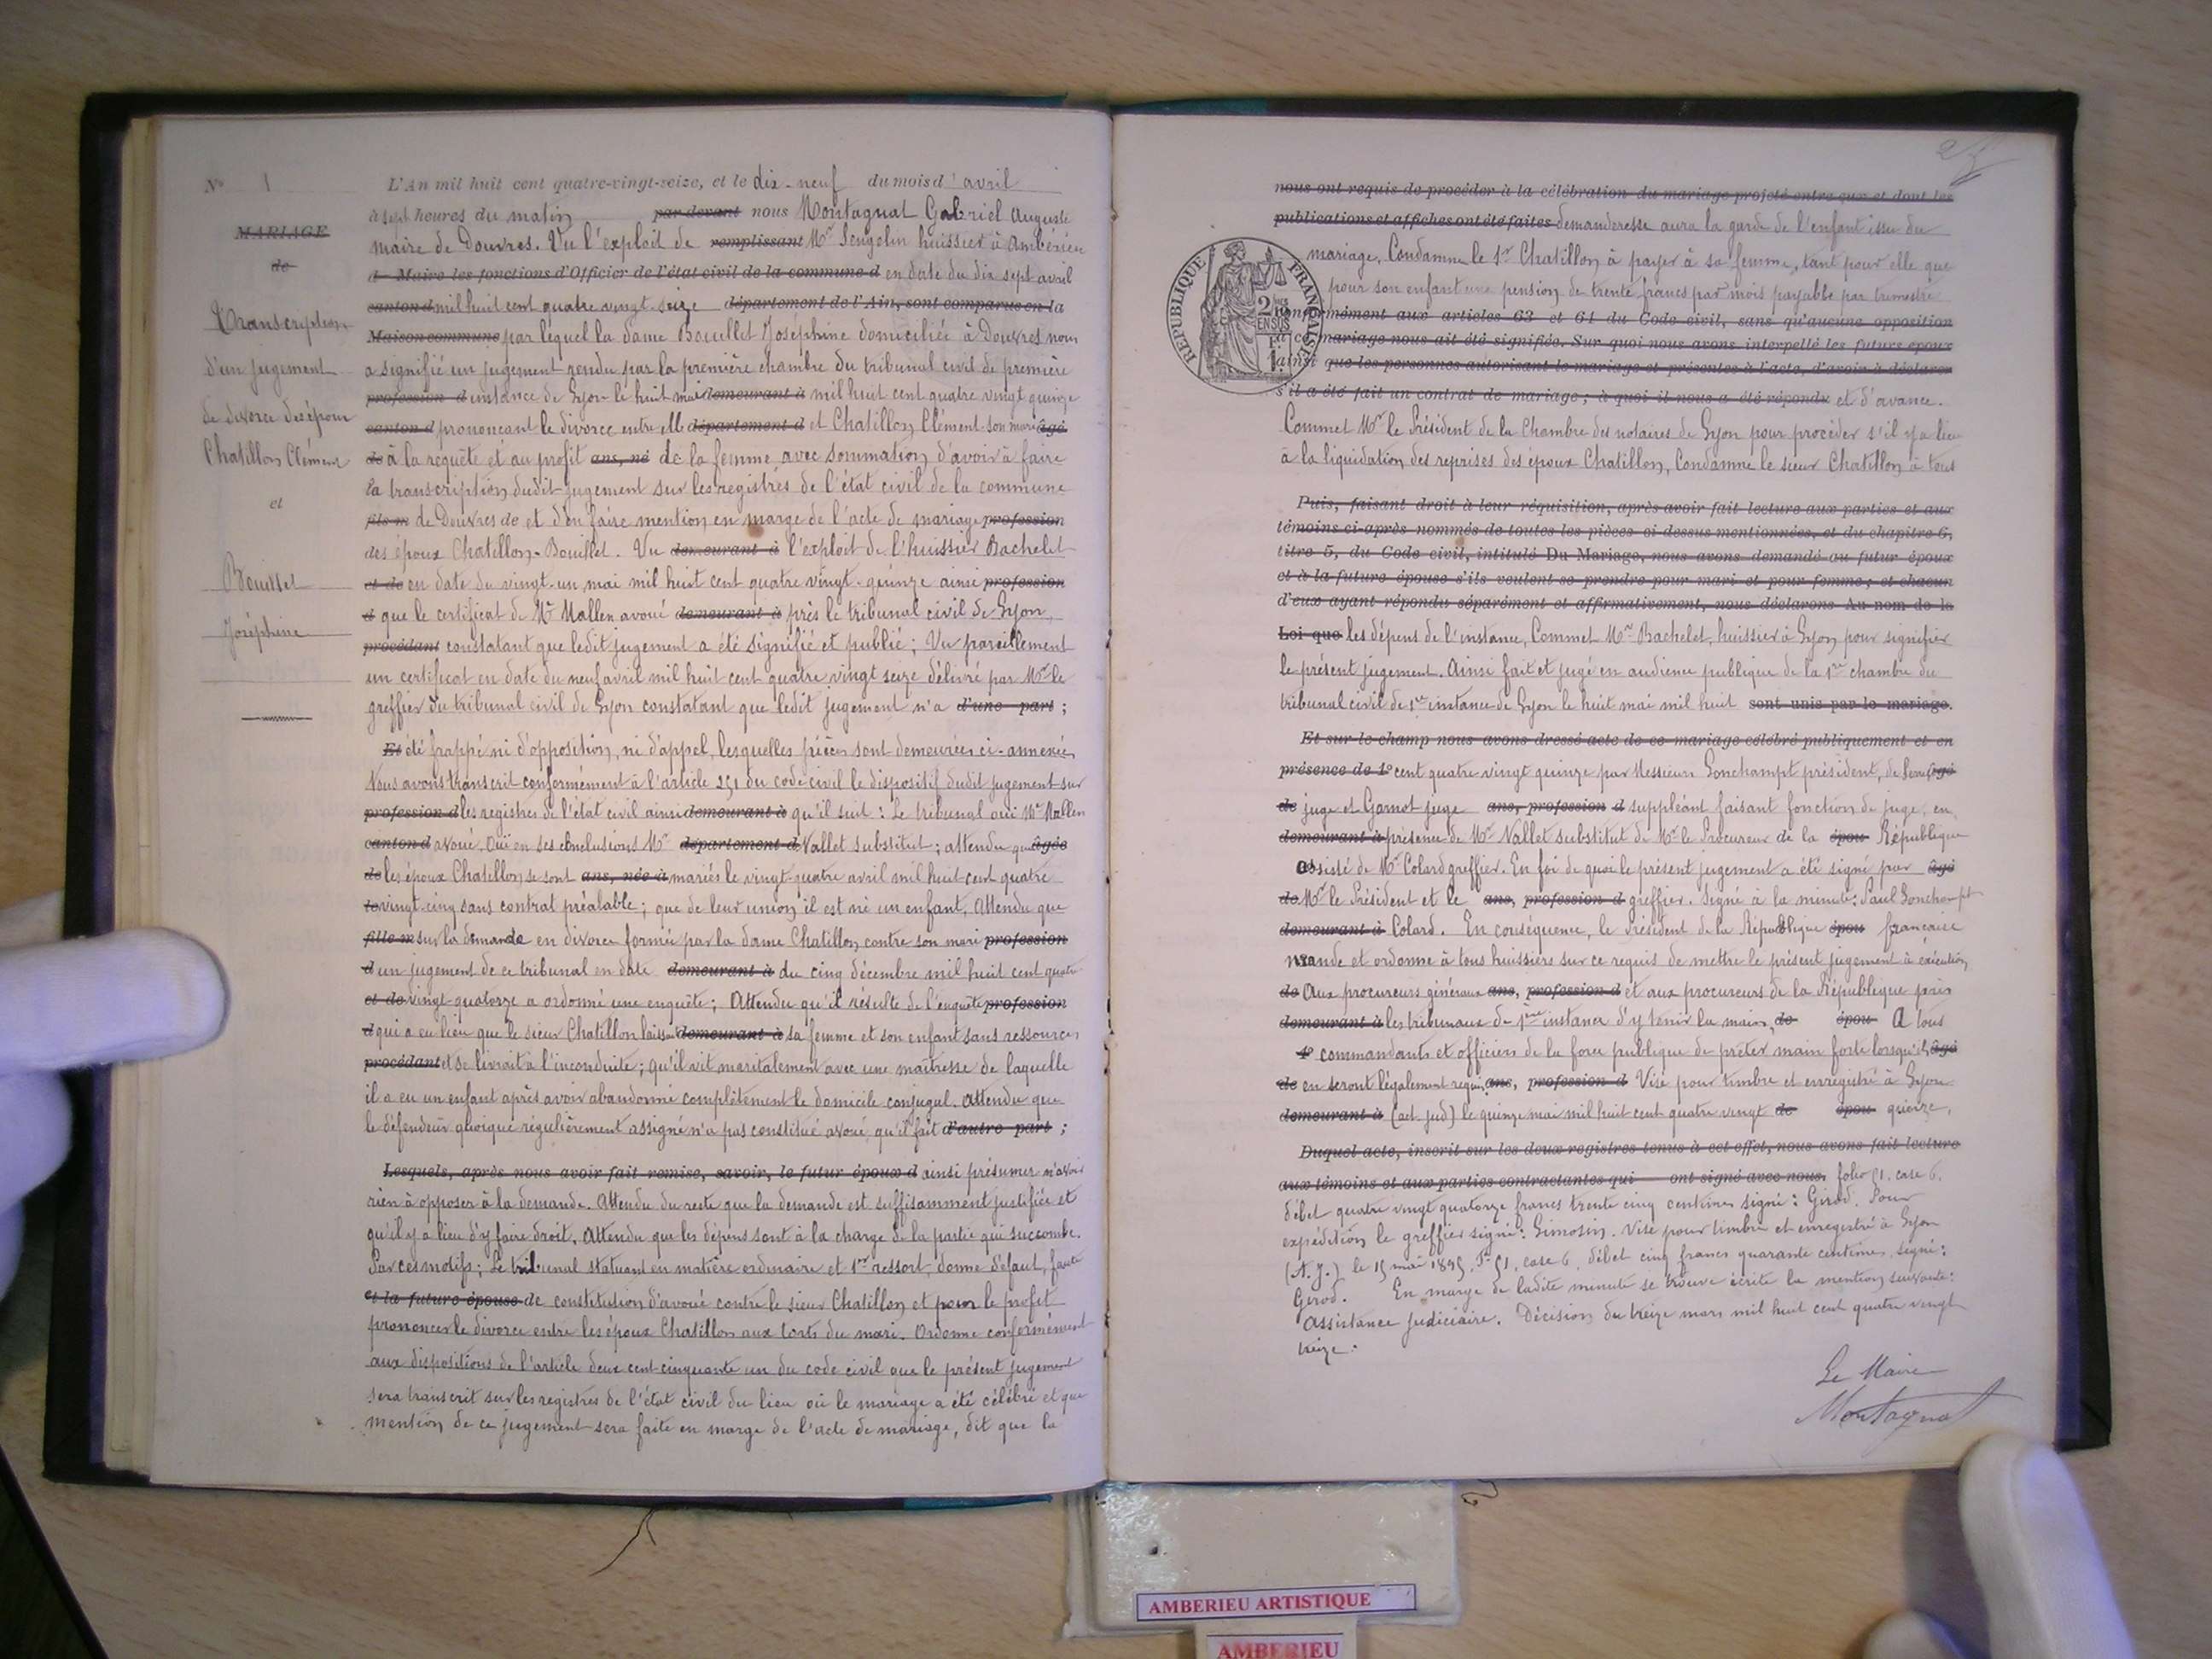 N° 1
MARIAGE
de
Transcription
d'un jugement
de divorce des époux
Chatillon Clément
et
Bouillet
Joséphine
L'An mil huit cent quatre-vingt-seize, et le dix-neuf du mois d'avril
à sept heures du matin par devant nous Montagnat Gabriel Auguste
maire de Douvres. Vu l'exploit de remplissant Mr Sengelin huissier à Ambérieu
d Maire les fonctions d'Officier de l'état civil de la commune d en date du dix sept avril
canton d mil huit cent quatre vingt seize département de l'Ain, sont comparus en la
Maison commune par lequel la dame Bouillet Joséphine domiciliée à Douvres nous
a signifié un jugement rendu par la première chambre du tribunal civil de première
profession d instance de Lyon le huit mai demeurant à mil huit cent quatre vingt quinze
canton d prononçant le divorce entre elle département d et Chatillon Clément son mari âgé
de à la requête et au profit ans, né de la femme avec sommation d'avoir à faire
la transcription dudit jugement sur les registres de l'état civil de la commune
fils m de Douvres de et d'en faire mention en marge de l'acte de mariage profession
des époux Chatillon-Bouillet. Vu demeurant à l'exploit de l'huissier Bachelet
et de en date du vingt-un mai mil huit cent quatre vingt-quinze ainsi profession
d que le certificat de Mr Mallen avoué demeurant à près le tribunal civil de Lyon
procédant constatant que ledit jugement a été signifié et publié ; Vu pareillement
un certificat en date du neuf avril mil huit cent quatre vingt seize délivré par Mr le
greffier du tribunal civil de Lyon constatant que ledit jugement n'a d'une part ;
Et été frappé ni d'opposition, ni d'appel, lesquelles pièces sont demeurées ci-annexées
Nous avons transcrit conformément à l'article 251 du code civil le dispositif dudit jugement sur
profession d les registres de l'état civil ainsi demeurant à qu'il suit : Le tribunal ouï Mr Mallen
canton d avoué. Ouï en ses conclusions Mr département d Vallet substitut ; attendu que âgée
de les époux Chatillon se sont ans, née à mariés le vingt quatre avril mil huit cent quatre
vingt-cinq sans contrat préalable ; que de leur union il est né un enfant, Attendu que
fille m sur la demande en divorce formée par la dame Chatillon contre son mari profession
d un jugement de ce tribunal en date demeurant à du cinq décembre mil huit cent quatre
et de vingt-quatorze a ordonné une enquête ; Attendu qu'il résulte de l'enquête profession
d qui a eu lieu que le sieur Chatillon laissait demeurant à sa femme et son enfant sans ressources
procédant et se livrait à l'inconduite ; qu'il vit maritalement avec une maîtresse de laquelle
il a eu un enfant après avoir abandonné complètement le domicile conjugal. Attendu que
le défendeur quoique régulièrement assigné n'a pas constitué avoué, qu'il fait d'autre part ;
Lesquels, après nous avoir fait remise, savoir, le futur époux d ainsi présumer n'avoir
rien à opposer à la demande. Attendu du reste que la demande est suffisamment justifiée et
qu'il y a lieu d'y faire droit, Attendu que les dépens sont à la charge de la partie qui succombe.
Par ces motifs ; Le tribunal statuant en matière ordinaire et 1er ressort, donne défaut, faute
et la future épouse de constitution d'avoué contre le sieur Chatillon et pour le profit
prononcer le divorce entre les époux Chatillon aux torts du mari. Ordonne conformément
aux dispositions de l'article deux cent cinquante un du code civil que le présent jugement
sera transcrit sur les registres de l'état civil du lieu où le mariage a été célébré et que
mention de ce jugement sera faite en marge de l'acte de mariage, dit que la
nous ont requis de procéder à la célébration du mariage projeté entre eux et dont les
publications et affiches ont été faites demanderesse aura la garde de l'enfant issu du
mariage, Condamne le Sr Chatillon à payer à sa femme, tant pour elle que
pour son enfant une pension de trente francs par mois payable par trimestre
RÉPUBLIQUE FRANÇAISE
conformément aux articles 63 et 64 du Code civil, sans qu'aucune opposition
à ce mariage nous ait été signifiée. Sur quoi nous avons interpellé les futurs époux
ainsi que les personnes autorisant le mariage et présentes à l'acte, d'avoir à déclarer
s'il a été fait un contrat de mariage ; à quoi il nous a été répondu et d'avance.
Commet Mr le Président de la Chambre des notaires de Lyon pour procéder s'il y a lieu
à la liquidation des reprises des époux Chatillon, Condamne le sieur Chatillon à tous
Puis, faisant droit à leur réquisition, après avoir fait lecture aux parties et aux
témoins ci-après nommés de toutes les pièces ci-dessus mentionnées, et du chapitre 6,
titre 5, du Code civil, intitulé Du Mariage, nous avons demandé au futur époux
et à la future épouse s'ils veulent se prendre pour mari et pour femme ; et chacun
d'eux ayant répondu séparément et affirmativement, nous déclarons Au nom de la
Loi que les dépens de l'instance, Commet Mr Bachelet, huissier à Lyon pour signifier
le présent jugement. Ainsi fait et jugé en audience publique de la 1re chambre du
tribunal civil de 1re instance de Lyon le huit mai mil huit sont unis par le mariage.
Et sur-le-champ nous avons dressé acte de ce mariage célébré publiquement et en
présence de 1° cent quatre vingt quinze par Messieurs Sonchampt président, de âgé
de juge et Garnot juge ans, profession d suppléant faisant fonction de juge, en
demeurant à présence de Mr Vallet substitut de Mr le Procureur de la épou République
assisté de Mr Colard greffier. En foi de quoi le présent jugement a été signé par âgé
de Mr le Président et le ans, profession d greffier. Signé à la minute : Paul Sonchampt
demeurant à Colard. En conséquence, le Président de la République épou française
mande et ordonne à tous huissiers sur ce requis de mettre le présent jugement à exécution,
de Aux procureurs généraux ans, profession d et aux procureurs de la République près
demeurant à les tribunaux de 1ère instance d'y tenir la main, de épou A tous
4° commandants et officiers de la force publique de prêter main forte lorsqu'ils âgé
de en seront légalement requis, ans, profession d Visé pour timbre et enregistré à Lyon
demeurant à (act. jud) le quinze mai mil huit cent quatre vingt de épou quinze,
Duquel acte, inscrit sur les deux registres tenus à cet effet, nous avons fait lecture
aux témoins et aux parties contractantes qui ont signé avec nous. folio 51, case 6,
débet quatre vingt quatorze francs trente cinq centimes signé : Girod. Pour
expédition le greffier signé : Simosin. Visé pour timbre et enregistré à Lyon
(A. J.) le 15 mai 1895, F° 51, case 6, débet cinq francs quarante centimes, signé :
Girod. En marge de ladite minute se trouve écrite la mention suivante :
Assistance judiciaire. Décision du treize mars mil huit cent quatre vingt
treize.
Le Maire
Montagnat
AMBERIEU ARTISTIQUE
AMBERIEU